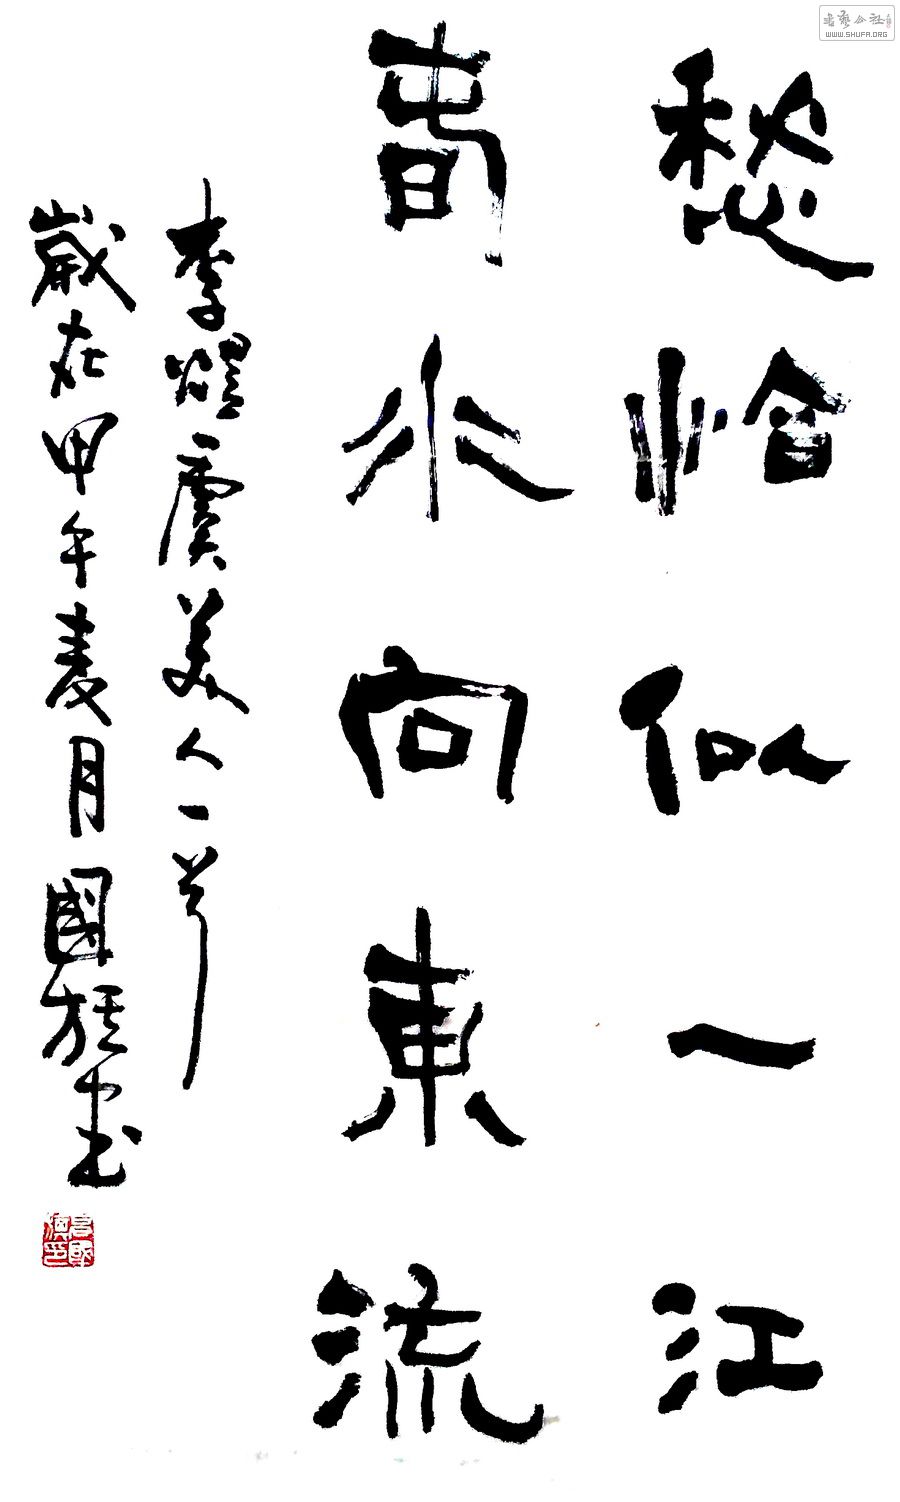 愁恰似一江
春水向東流
李煜虞美人一首
歲在甲午夏月國旗書
書藝公社
WWW.SHUFA.ORG